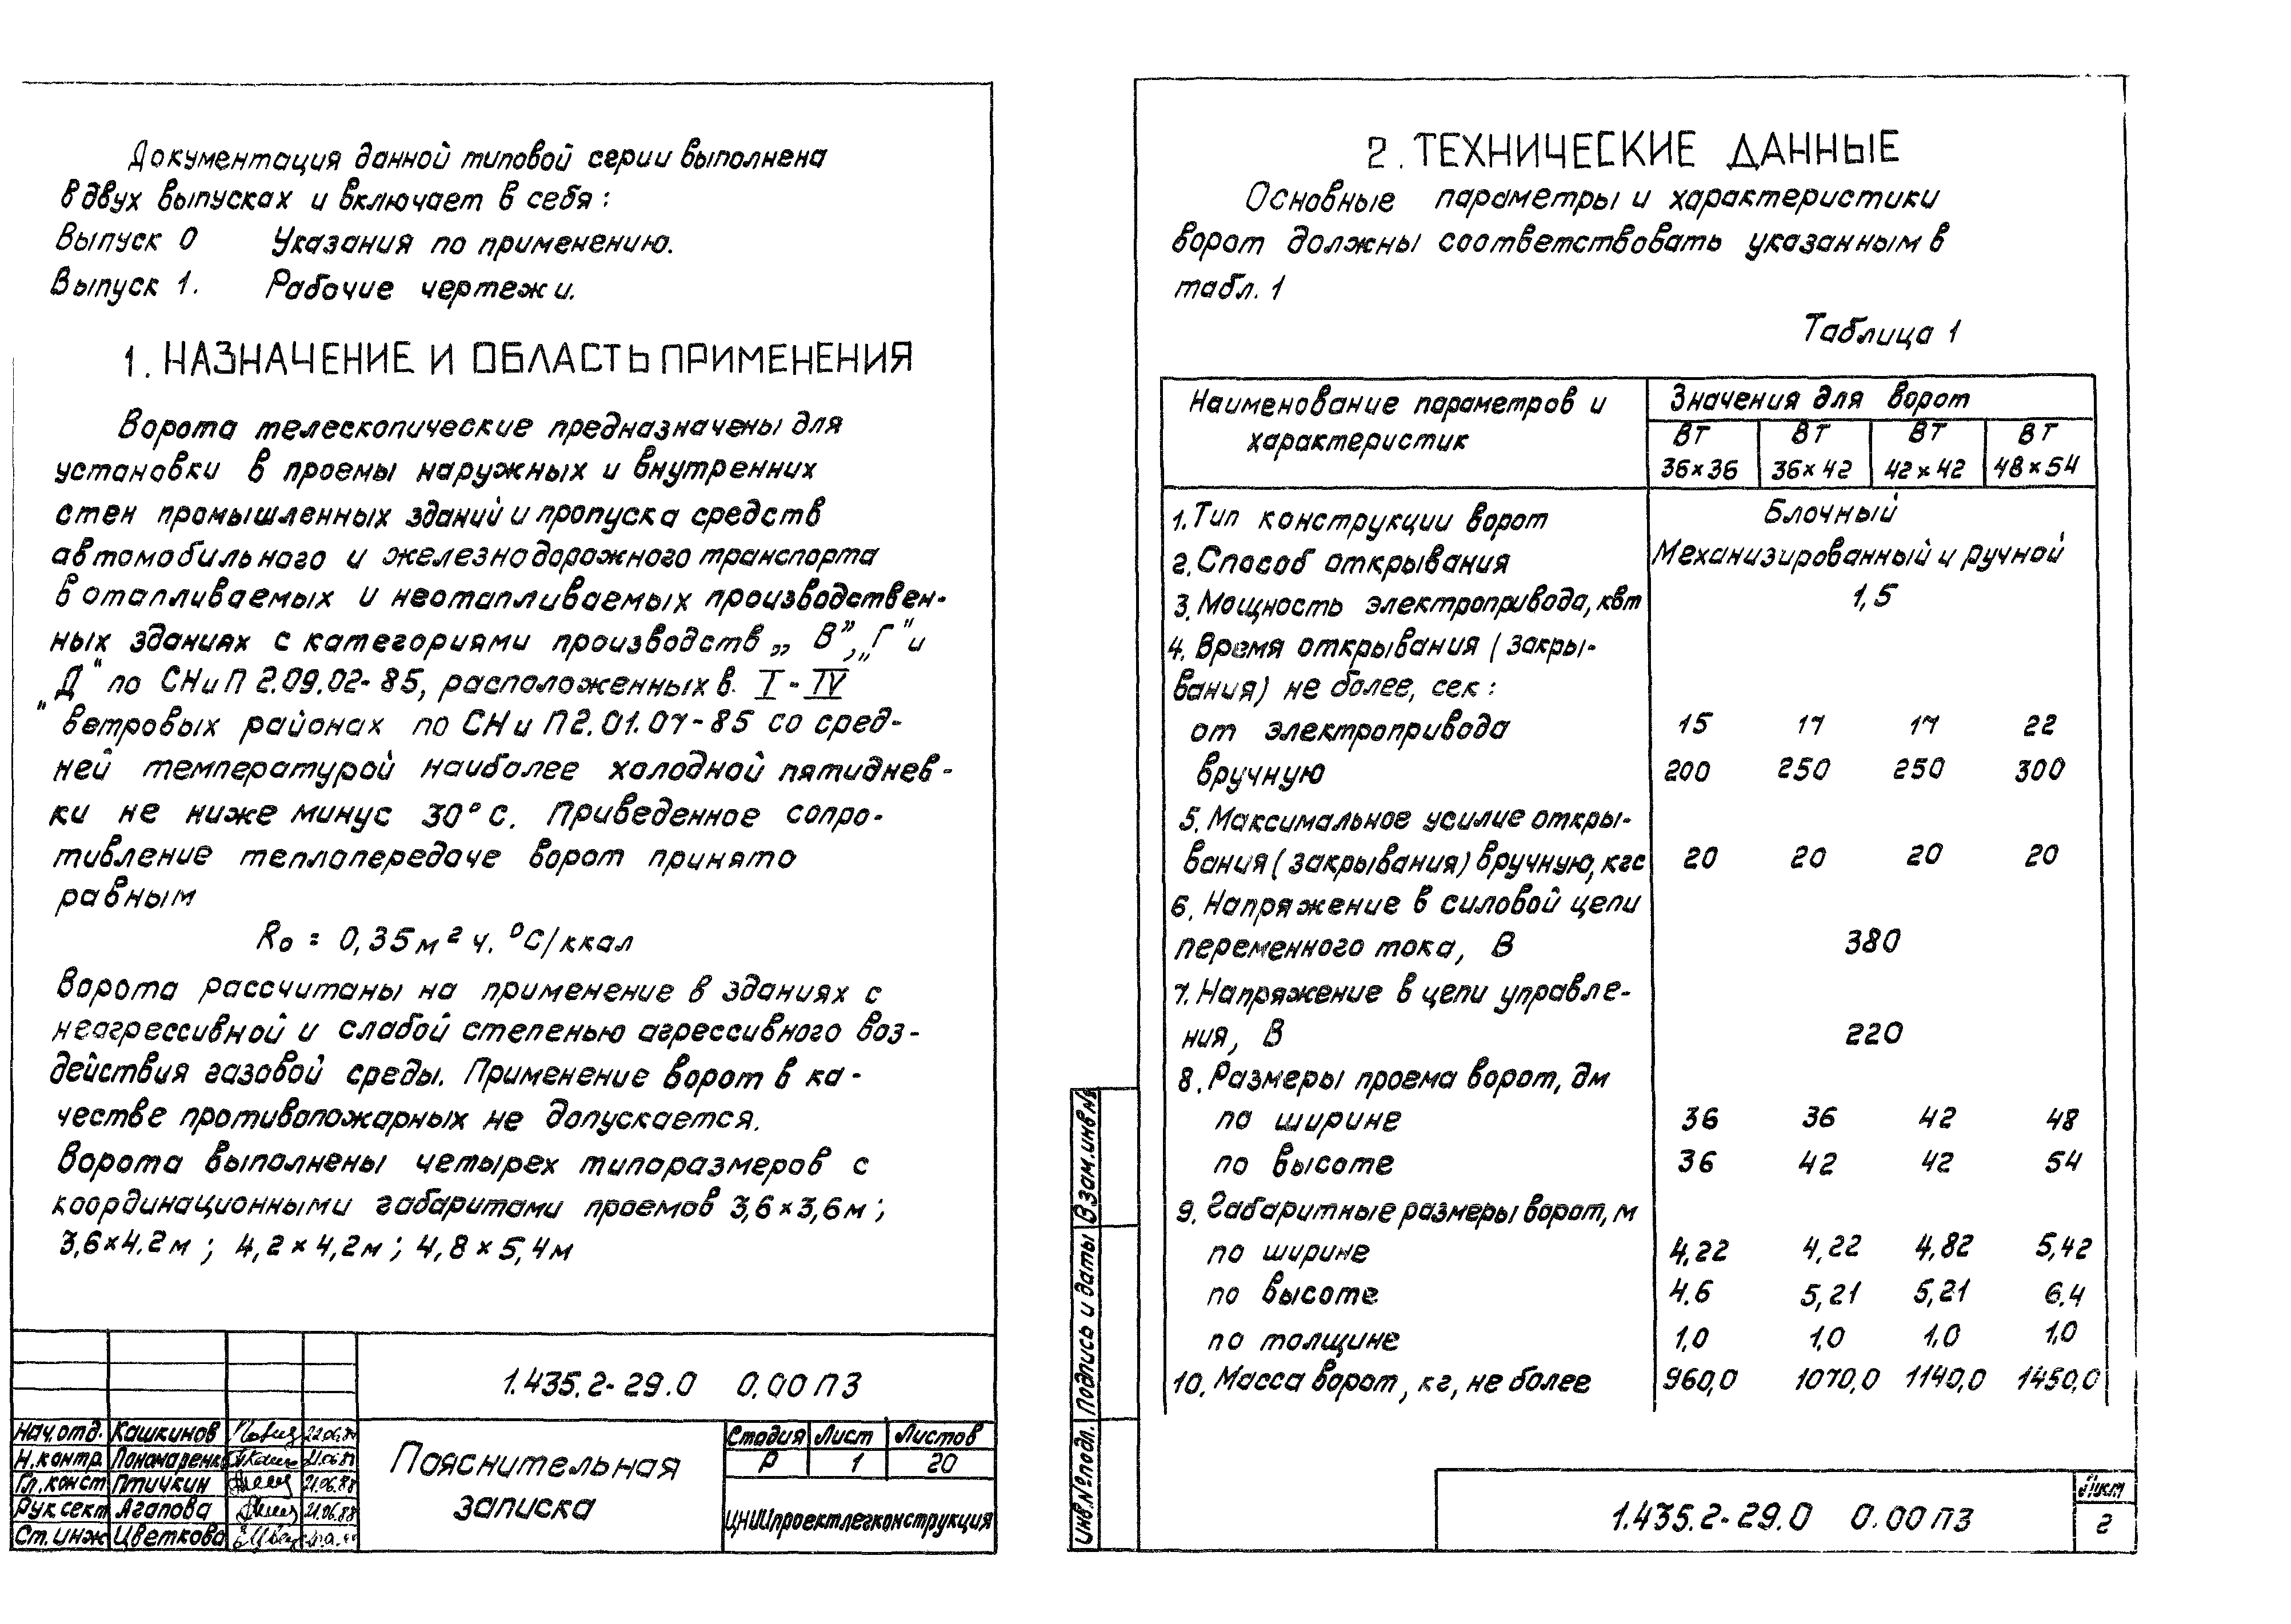 Документация данной типовой серии выполнена
в двух выпусках и включает в себя:
Выпуск 0 Указания по применению.
Выпуск 1. Рабочие чертежи.
1. НАЗНАЧЕНИЕ И ОБЛАСТЬ ПРИМЕНЕНИЯ
Ворота телескопические предназначены для
установки в проемы наружных и внутренних
стен промышленных зданий и пропуска средств
автомобильного и железнодорожного транспорта
в отапливаемых и неотапливаемых производствен-
ных зданиях с категориями производств „В”, „Г” и
„Д” по СНиП 2.09.02-85, расположенных в. I - IV
ветровых районах по СНиП 2.01.07-85 со сред-
ней температурой наиболее холодной пятиднев-
ки не ниже минус 30°С. Приведенное сопро-
тивление теплопередаче ворот принято
равным
Rо = 0,35 м² ч. °С/ккал
Ворота рассчитаны на применение в зданиях с
неагрессивной и слабой степенью агрессивного воз-
действия газовой среды. Применение ворот в ка-
честве противопожарных не допускается.
Ворота выполнены четырех типоразмеров с
координационными габаритами проемов 3,6×3,6м;
3,6×4.2м; 4,2×4,2м; 4,8×5,4м
1.435.2-29.0 0.00 ПЗ
Нач.отд. Кашкинов
Н.контр. Пономаренко 21.06.88
Гл.конст Птичкин 21.06.88
Рук сект Агапова 21.06.88
Ст.инж Цветкова
Пояснительная
записка
Стадия Лист Листов
Р 1 20
ЦНИИпроектлегконструкция
2. ТЕХНИЧЕСКИЕ ДАННЫЕ
Основные параметры и характеристики
ворот должны соответствовать указанным в
табл. 1
Таблица 1
Наименование параметров и
характеристик
Значения для ворот
ВТ ВТ ВТ ВТ
36×36 36×42 42×42 48×54
1. Тип конструкции ворот Блочный
2. Способ открывания Механизированный и ручной
3. Мощность электропривода, квт 1,5
4. Время открывания (закры-
вания) не более, сек:
от электропривода 15 17 17 22
вручную 200 250 250 300
5. Максимальное усилие откры-
вания (закрывания) вручную, кгс 20 20 20 20
6. Напряжение в силовой цепи
переменного тока, В 380
7. Напряжение в цепи управле-
ния, В 220
8. Размеры проема ворот, дм
по ширине 36 36 42 48
по высоте 36 42 42 54
9. Габаритные размеры ворот, м
по ширине 4.22 4,22 4,82 5,42
по высоте 4.6 5,21 5,21 6.4
по толщине 1,0 1,0 1,0 1,0
10. Масса ворот, кг, не более 960,0 1070,0 1140,0 1450,0
Взам.инв.№
Подпись и даты
Инв.№подл.
1.435.2-29.0 0.00 ПЗ
Лист
2